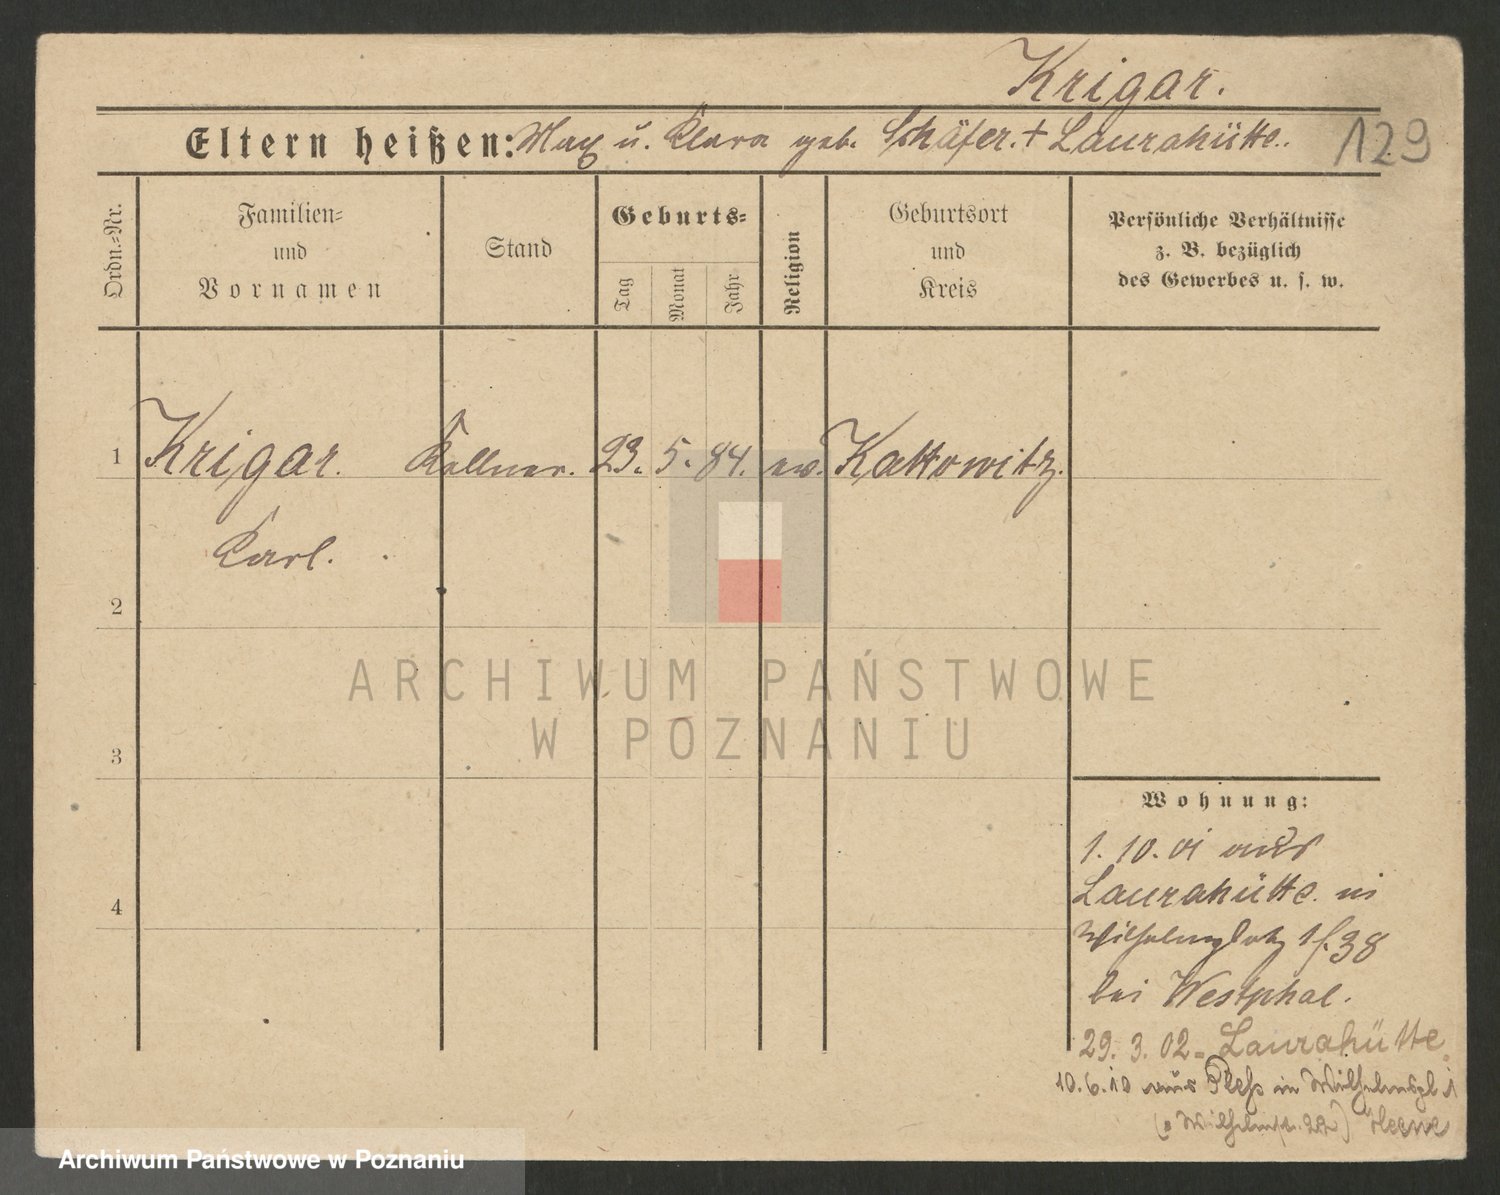 Krigar.
Eltern heißen: Max u. Clara geb. Schäfer. + Laurahütte.
129
Ordn.=Nr.
Familien=
und
Vornamen
Stand
Geburts=
Tag
Monat
Jahr
Religion
Geburtsort
und
Kreis
Persönliche Verhältnisse
z. B. bezüglich
des Gewerbes u. s. w.
1 Krigar. Kellner. 23. 5. 84. ev. Kattowitz.
Carl.
2
3
4
ARCHIWUM PAŃSTWOWE
W POZNANIU
Wohnung:
1. 10. 01 aus
Laurahütte. in
Wilhelmplatz 1 f. 38
bei Westphal.
29. 3. 02 - Laurahütte.
10. 6. 10 aus Pleß in Wilhelmspl 1
Archiwum Państwowe w Poznaniu